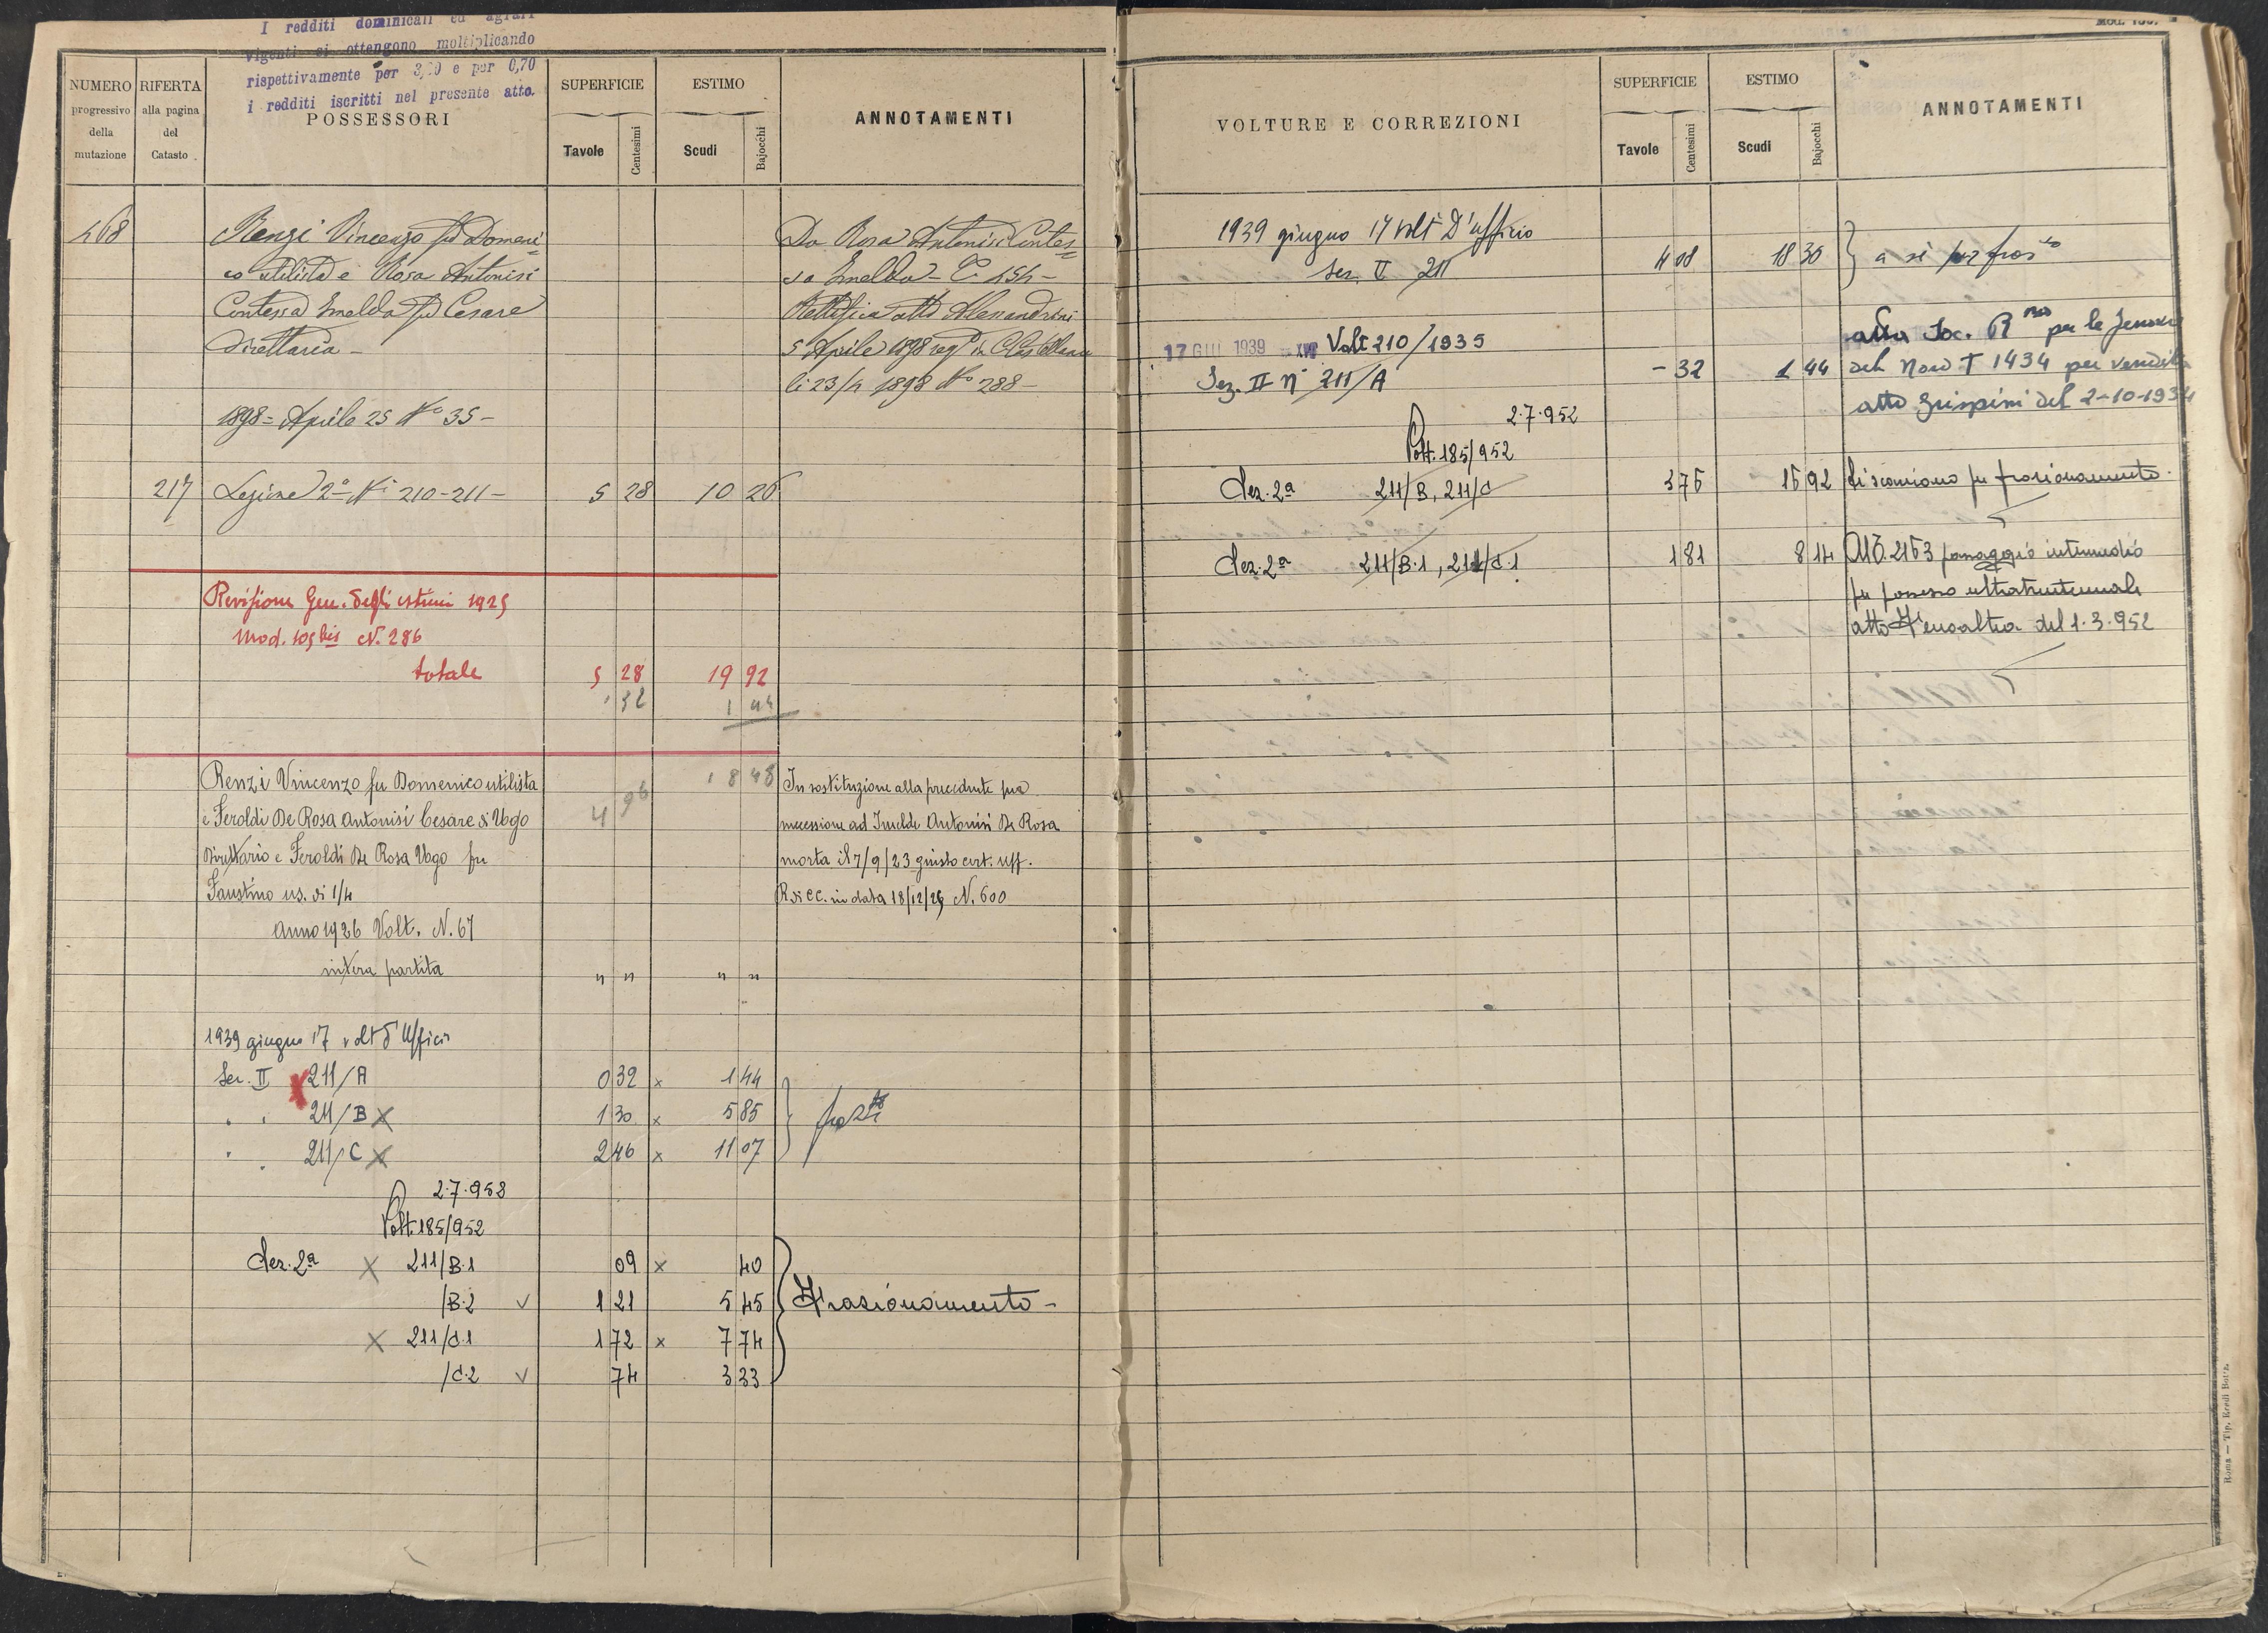 I redditi dominicali ed agrari
vigenti si ottengono moltiplicando
rispettivamente per 3,20 e per 0,70
i redditi iscritti nel presente atto.
NUMERO progressivo della mutazione
RIFERTA alla pagina del Catasto
POSSESSORI
SUPERFICIE
Tavole Centesimi
ESTIMO
Scudi Bajocchi
ANNOTAMENTI
468
Renzi Vincenzo fu Domeni=
co utilista e Rosa Antonisi
Contessa Imelda fu Cesare
Direttaria -
1898 = Aprile 25 N° 35 -
Da Rosa Antonisi Contes=
sa Imelda - C. 454 -
Rettifica atto Alessandrini
5 Aprile 1898 reg° in
li 23/4 1898 N° 288 -
217 Sezione 2ª N¹ 210-211 - 5 28 10 26
Revisione Gen. degli estimi 1925
Mod. 105 bis N. 286
totale 5 28 19 92
32 1 44
4 96 18 48
Renzi Vincenzo fu Domenico utilista
e Feroldi De Rosa Antonisi Cesare di Ugo
Direttario e Feroldi De Rosa Ugo fu
Faustino us. di 1/4
Anno 1926 Volt. N. 67
intera partita " " " "
In sostituzione alla precedente per
successione ad Imelde Antonisi De Rosa
morta il 7/9/23 giusto cert. uff.
R di CC. in data 18/12/25 N. 600
1939 giugno 17 volt d'Ufficio
Sez. II X 211/A 0 32 x 1 44
" " 211/B X 1 30 x 5 85
" " 211/C X 2 46 x 11 07
2.7.952
Volt. 185/952
Sez. 2ª X 211/B.1 09 x 40
/B.2 ✓ 1 21 5 45
X 211/C.1 1 72 x 7 74
/C.2 ✓ 74 3 33
Frazionamento -
VOLTURE E CORREZIONI
SUPERFICIE
Tavole Centesimi
ESTIMO
Scudi Bajocchi
ANNOTAMENTI
1939 giugno 17 volt D'ufficio
Sez. II 211 4 08 18 36 a sé per fraz.to
17 GIU 1939 XVII Volt 210/1935
Sez. II n° 211/A - 32 1 44
alla Soc. R per le Ferrovie
del Nord T 1434 per vendita
atto Grispini del 2-10-1934
2.7.952
Volt. 185/952
Sez. 2ª 211/B, 211/C 3 76 16 92 Si scaricano per frazionamento.
Sez. 2ª 211/B.1, 211/C.1 1 81 8 14
All. 2163 passaggio intermedio
per possesso ultratrentennale
atto del 1.3.952
Roma — Tip. Eredi Botta.